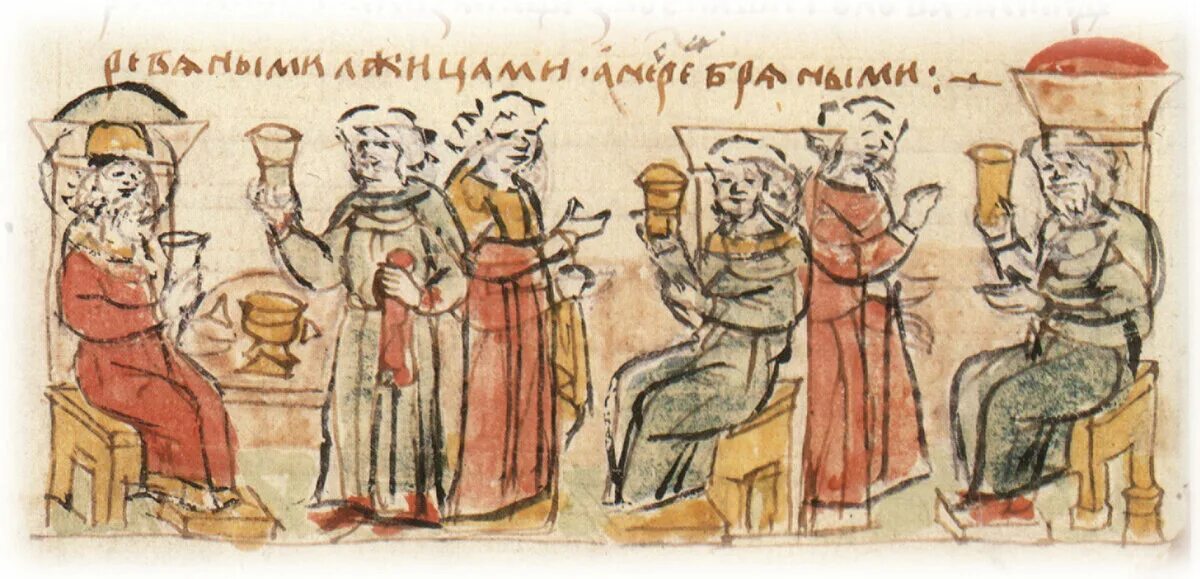 ревѧными лжицами · а не сребрѧными :